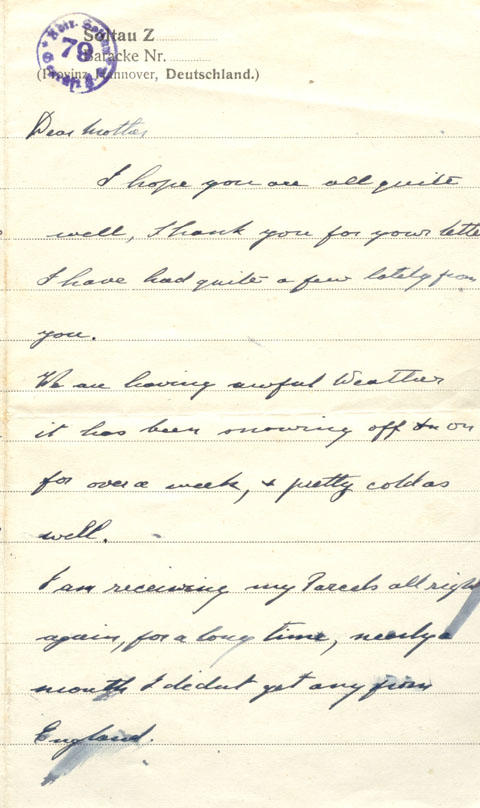 Soltau Z
79
Baracke Nr.
(Provinz Hannover, Deutschland.)
Dear Mother
I hope you are all quite
well, Thank you for your lette
I have had quite a few lately from
you.
We are having awful Weather
it has been snowing off & on
for over a week, & pretty cold as
well.
I am receiving my Parcels all righ
again, for a long time, nearly a
month I didnt get any from
England.